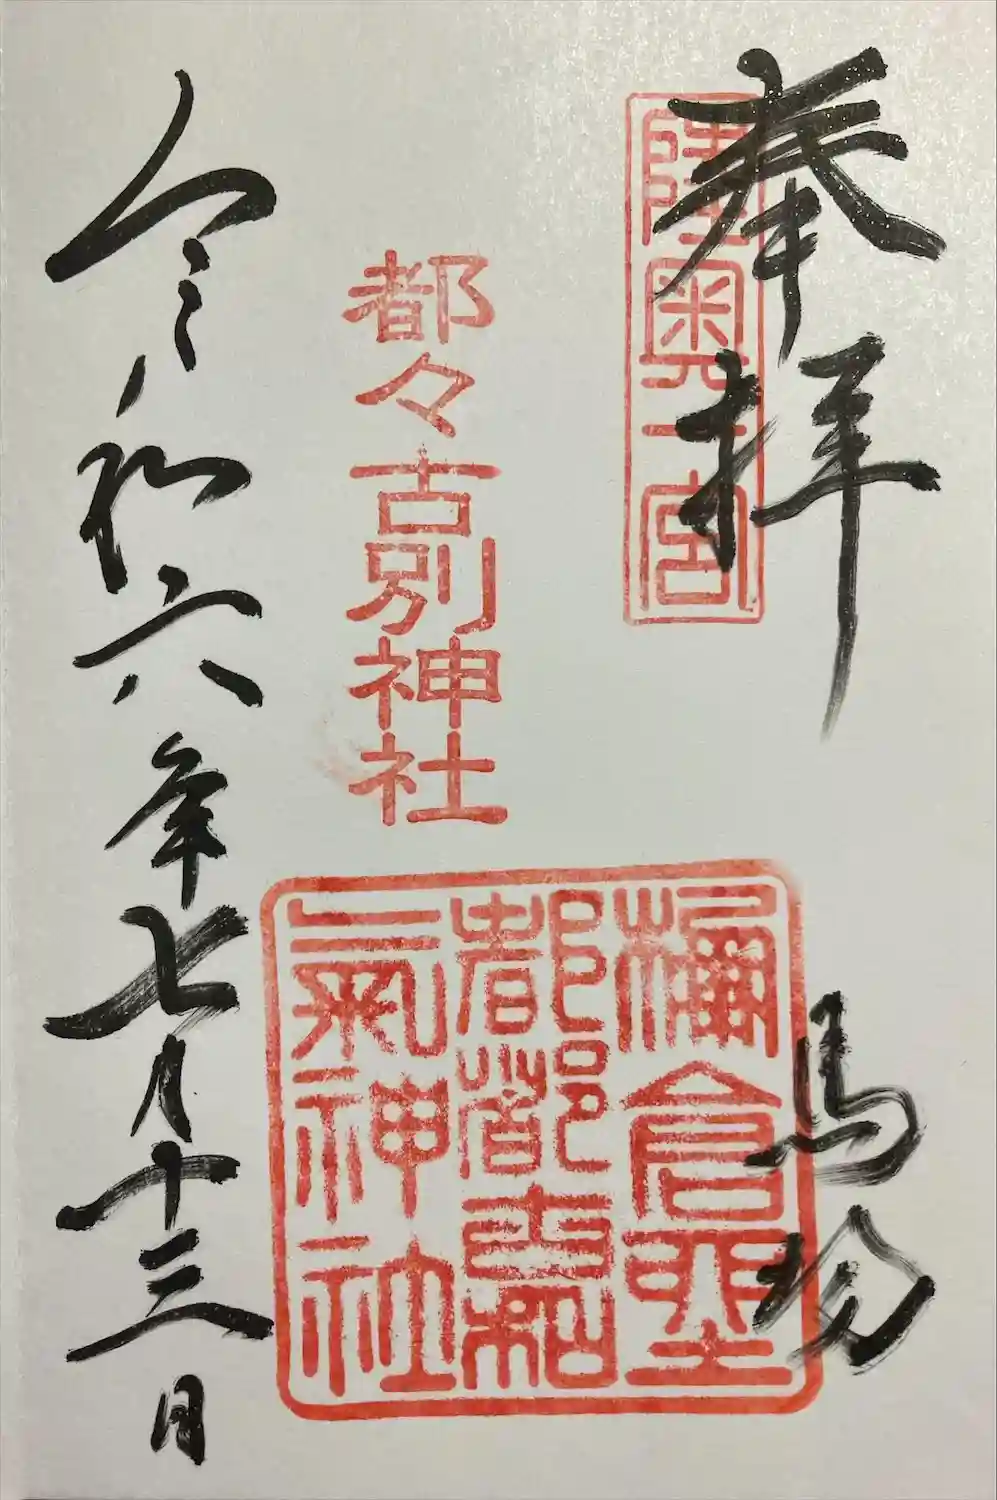 奉拝
陸奥一宮
馬場
都々古別神社
倉
都都古和
氣神社
令和六年七月十三日